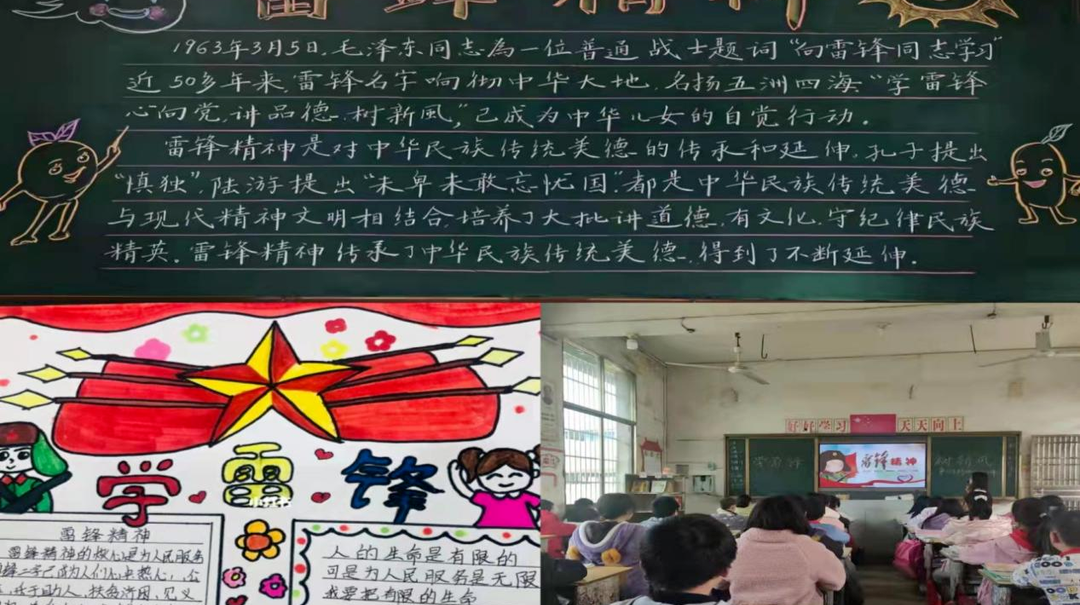 雷锋精神
1963年3月5日,毛泽东同志為一位普通战士题词“向雷锋同志学习”
近50多年来,雷锋名字响彻中华大地,名扬五洲四海,“学雷锋
心向党,讲品德,树新風,”已成为中华儿女的自觉行动.
雷锋精神是对中华民族传统美德的传承和延伸,孔子提出
“慎独”,陆游提出“未卑未敢忘忧国”都是中华民族传统美德
与现代精神文明相结合,培养了大批讲道德,有文化,守纪律民族
精英.雷锋精神传承了中华民族传统美德,得到了不断延伸.
学雷锋
小红书
雷锋精神
雷锋精神的核心是为人民服务
人的生命是有限的
可是为人民服务是无限
我要把有限的生命
好好学习 天天向上
学雷锋
雷锋精神
树新风